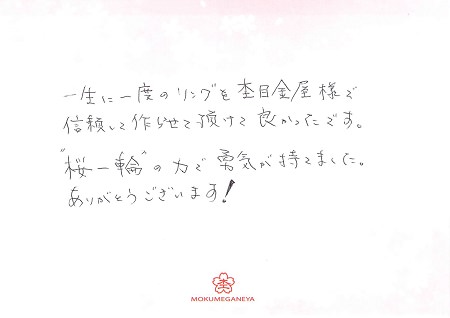 一生に一度のリングを杢目金屋様で
信頼して作らせて頂けて良かったです。
"桜一輪"の力で勇気が持てました。
ありがとうございます!
MOKUMEGANEYA